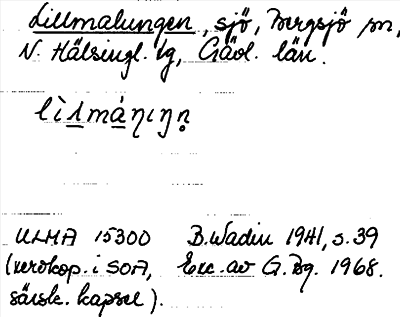 Lillmalungen, sjö, Bergsjö sn,
N. Hälsingl. tg, Gävl. län.
lìlmàŋɩŋn̥
ULMA 15300 B. Wadin 1941, s. 39
(xerokop. i SOA, Exc. av G. Bg. 1968.
särsk. kapsel).